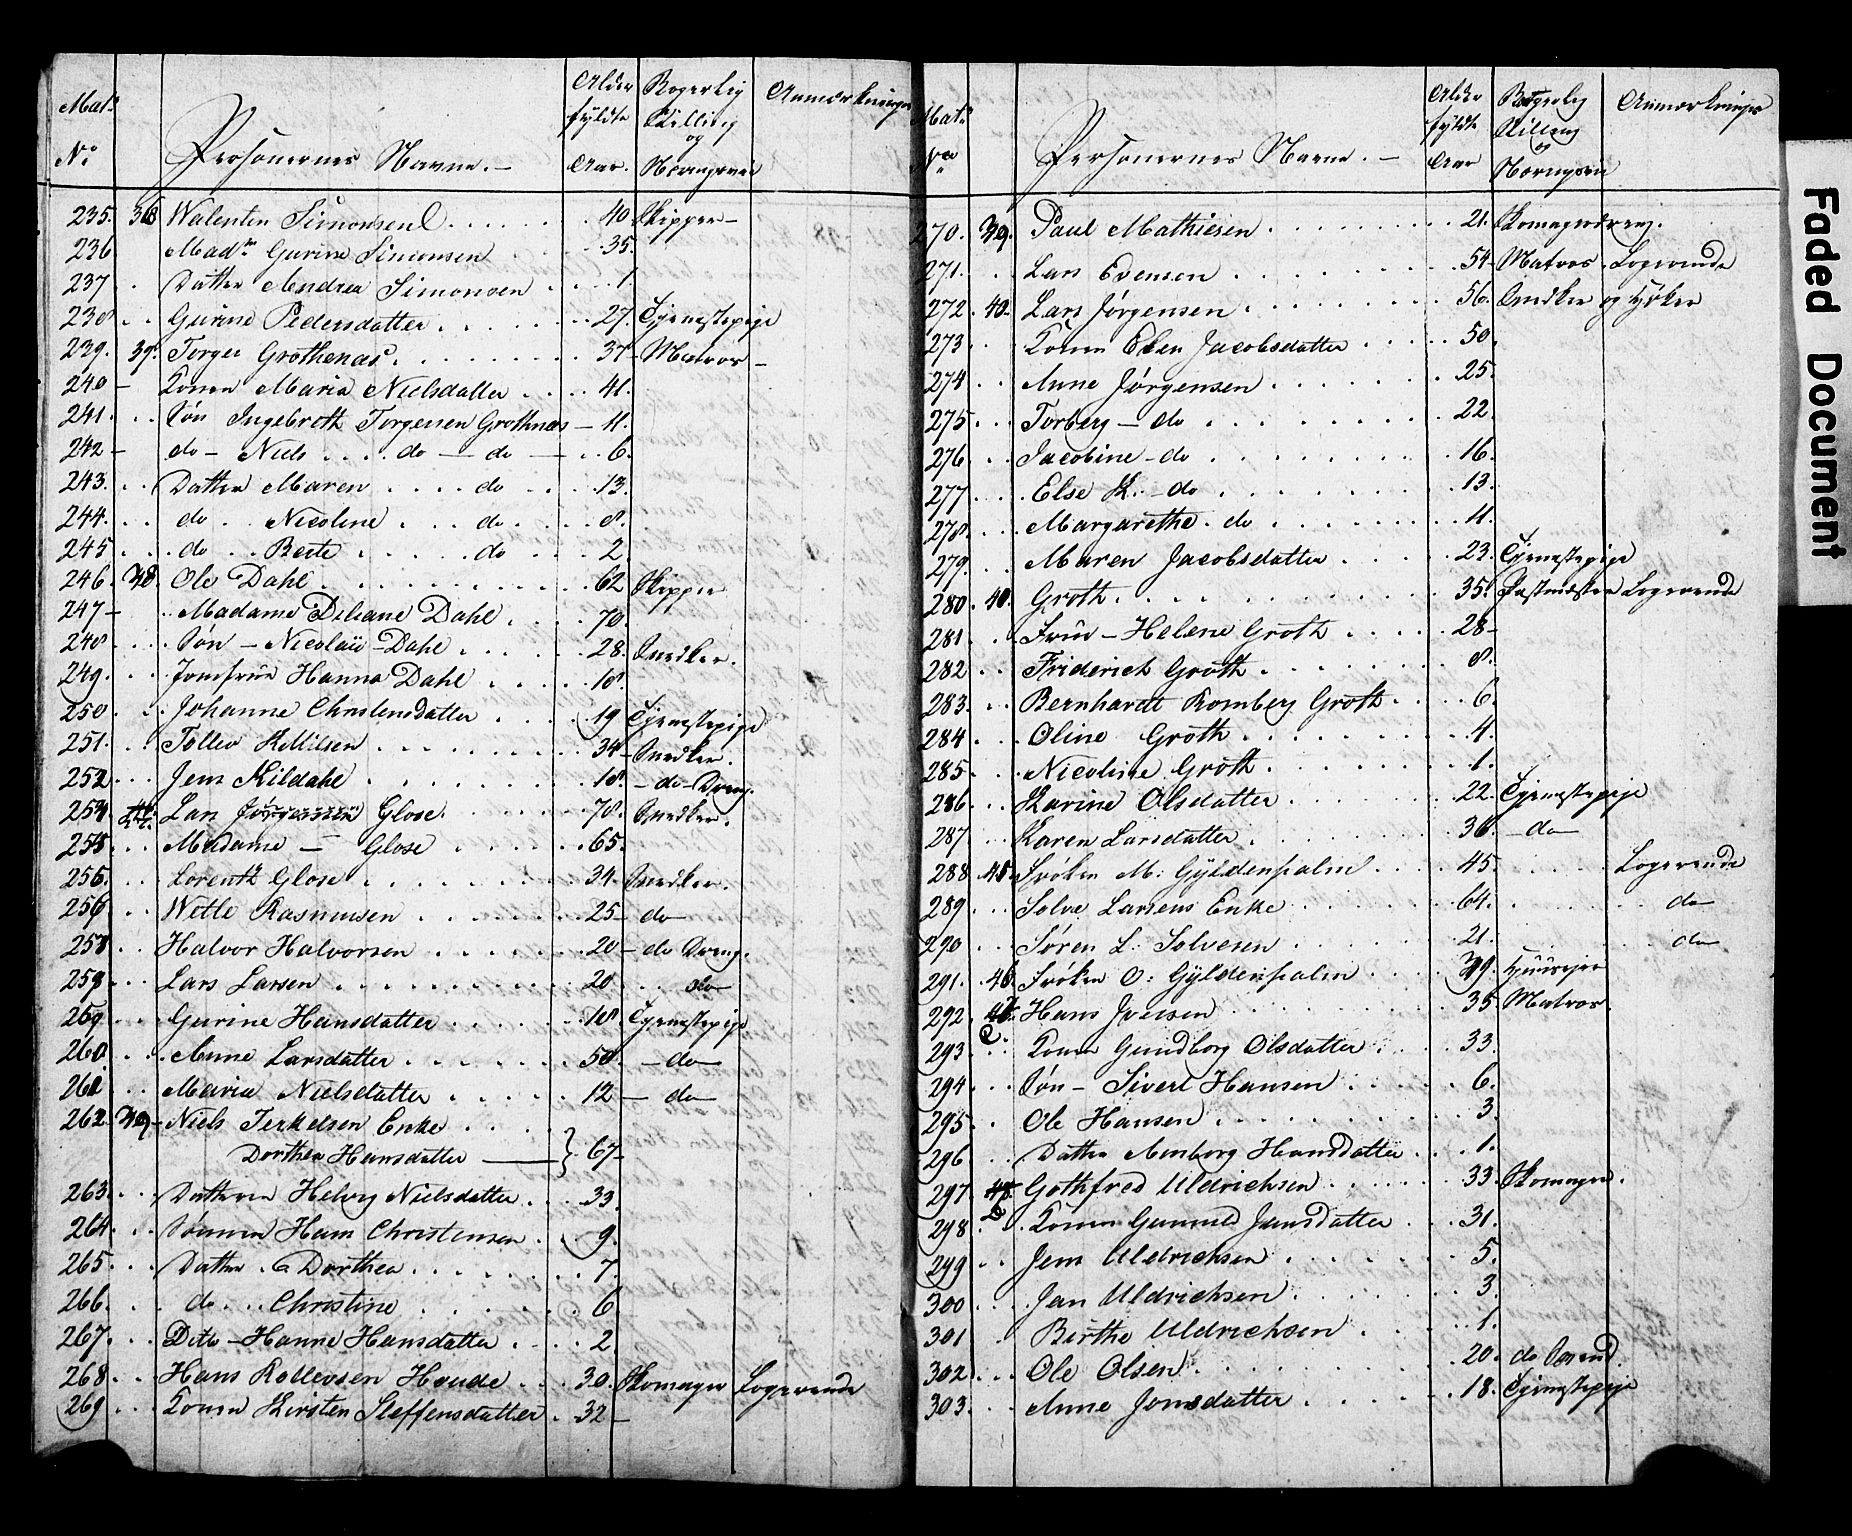 Mat: No Personernes Navne. – Alder fyldte Aar. Borgerlig Stilling og Næringsvei Anmærkninger
235. 36 Walentin Simonsen 40 Skipper –
236 Mad: Gurine Simonsen 35.
237 Datter Andrea Simonsen 1.
238 Gurine Pedersdatter 27. Tjenestepige
239. 37. Torger Grothenæs 37 – Matros –
240 – Konen Maria Nielsdatter 41.
241. Søn Ingebreth Torgersen Grothnæs – 11.
242 – do – Niels do – do – 6.
243. Datter Maren do 13.
244. do Nicoline do 8.
245 do Berte do 2
246. 38. Ole Dahl 62 Skipper
247 – Madame Diliane Dahl 70.
248 Søn – Nicolai – Dahl 28. Snedker.
249. Jomfrue Hanna Dahl 18.
250 Johanne Christensdatter 19 Tjenestepige
251. Tollev Killilsen 34 – Snedker.
252 Jens Kildahl 18 – do – Dreng.
254 Lars Jørgensen Glose. 78. Snedker.
255 Madame – Glose 65.
256. Lorentz Glose 34. Snedker.
256 Wetle Rasmusen 25 – do
258 Halvor Halvorsen 20 – do Dreng.
259 Lars Larsen 20 do
259 Gurine Hansdatter 18 Tjenestepige
260 Anne Larsdatter 50. – do –
261 Maria Nielsdatter 12 – do –
262. 39 – Niels Terkelsen Enke
Dorthea Hansdatter } 67 –
263. Datteren Helvig Nielsdatter 33.
264 Sønnen Hans Christensen 9.
265 Datter Dorthea 7.
266. do Christine 6.
267. Dito – Hanne Hansdatter 2.
268 Hans Rollevsen Houde 30. Skomager Logerende
269 Konen Kirsten Steffensdatter 32 –
Mat: No Personernes Navne. – Alder fyldte Aar Borgerlig Stilling og Næringsvei Anmærkninger
270. 39. Paul Mathiesen 21. Skomagerdreng.
271. Lars Evensen 54 – Matros Logerende
272. 40. Lars Jørgensen 56. Snedker og Høker
273 Konen Elen Jacobsdatter 50.
274 Anne Jørgensen 25.
275 Torberg – do 22.
276 Jacobine – do 16.
277 Else K. – do 13.
278. Margarethe. do 11.
279. Maren Jacobsdatter 23. Tjenestepige
280 40. Groth 35. Postmester Logerende
281 Frue – Helene Groth 28 –
282 Friderich Groth 8.
283. Bernhardt Romberg Groth 6.
284 Oline Groth 4.
285 Nicoline Groth 1.
286 Karine Olsdatter 22. Tjenestepige
287 Karen Larsdatter 36. – do –
288 45. Frøken M: Gyldenpalm 45. Logerende
289 Solve Larsens Enke 64. do
290 Søren L: Solvesen 21. do
291. 46. Frøken O: Gyldenpalm 39. Huuseyer
292. Hans Iversen 35 Matros.
293 Konen Gundborg Olsdatter 33.
294 Søn – Sivert Hansen 6.
295 Ole Hansen 3.
296 Datter Anborg Hansdatter 1.
297 Gothfred Uldrichsen 33. Skomager.
298 Konen Gunnild Jansdatter 31.
299 Jens Uldrichsen 5.
300 Jan Uldrichsen 3
301 Birthe Uldrichsen 1.
302 Ole Olsen 20. do Svend.
303. Anne Jonsdatter 18. Tjenestepige
Faded Document